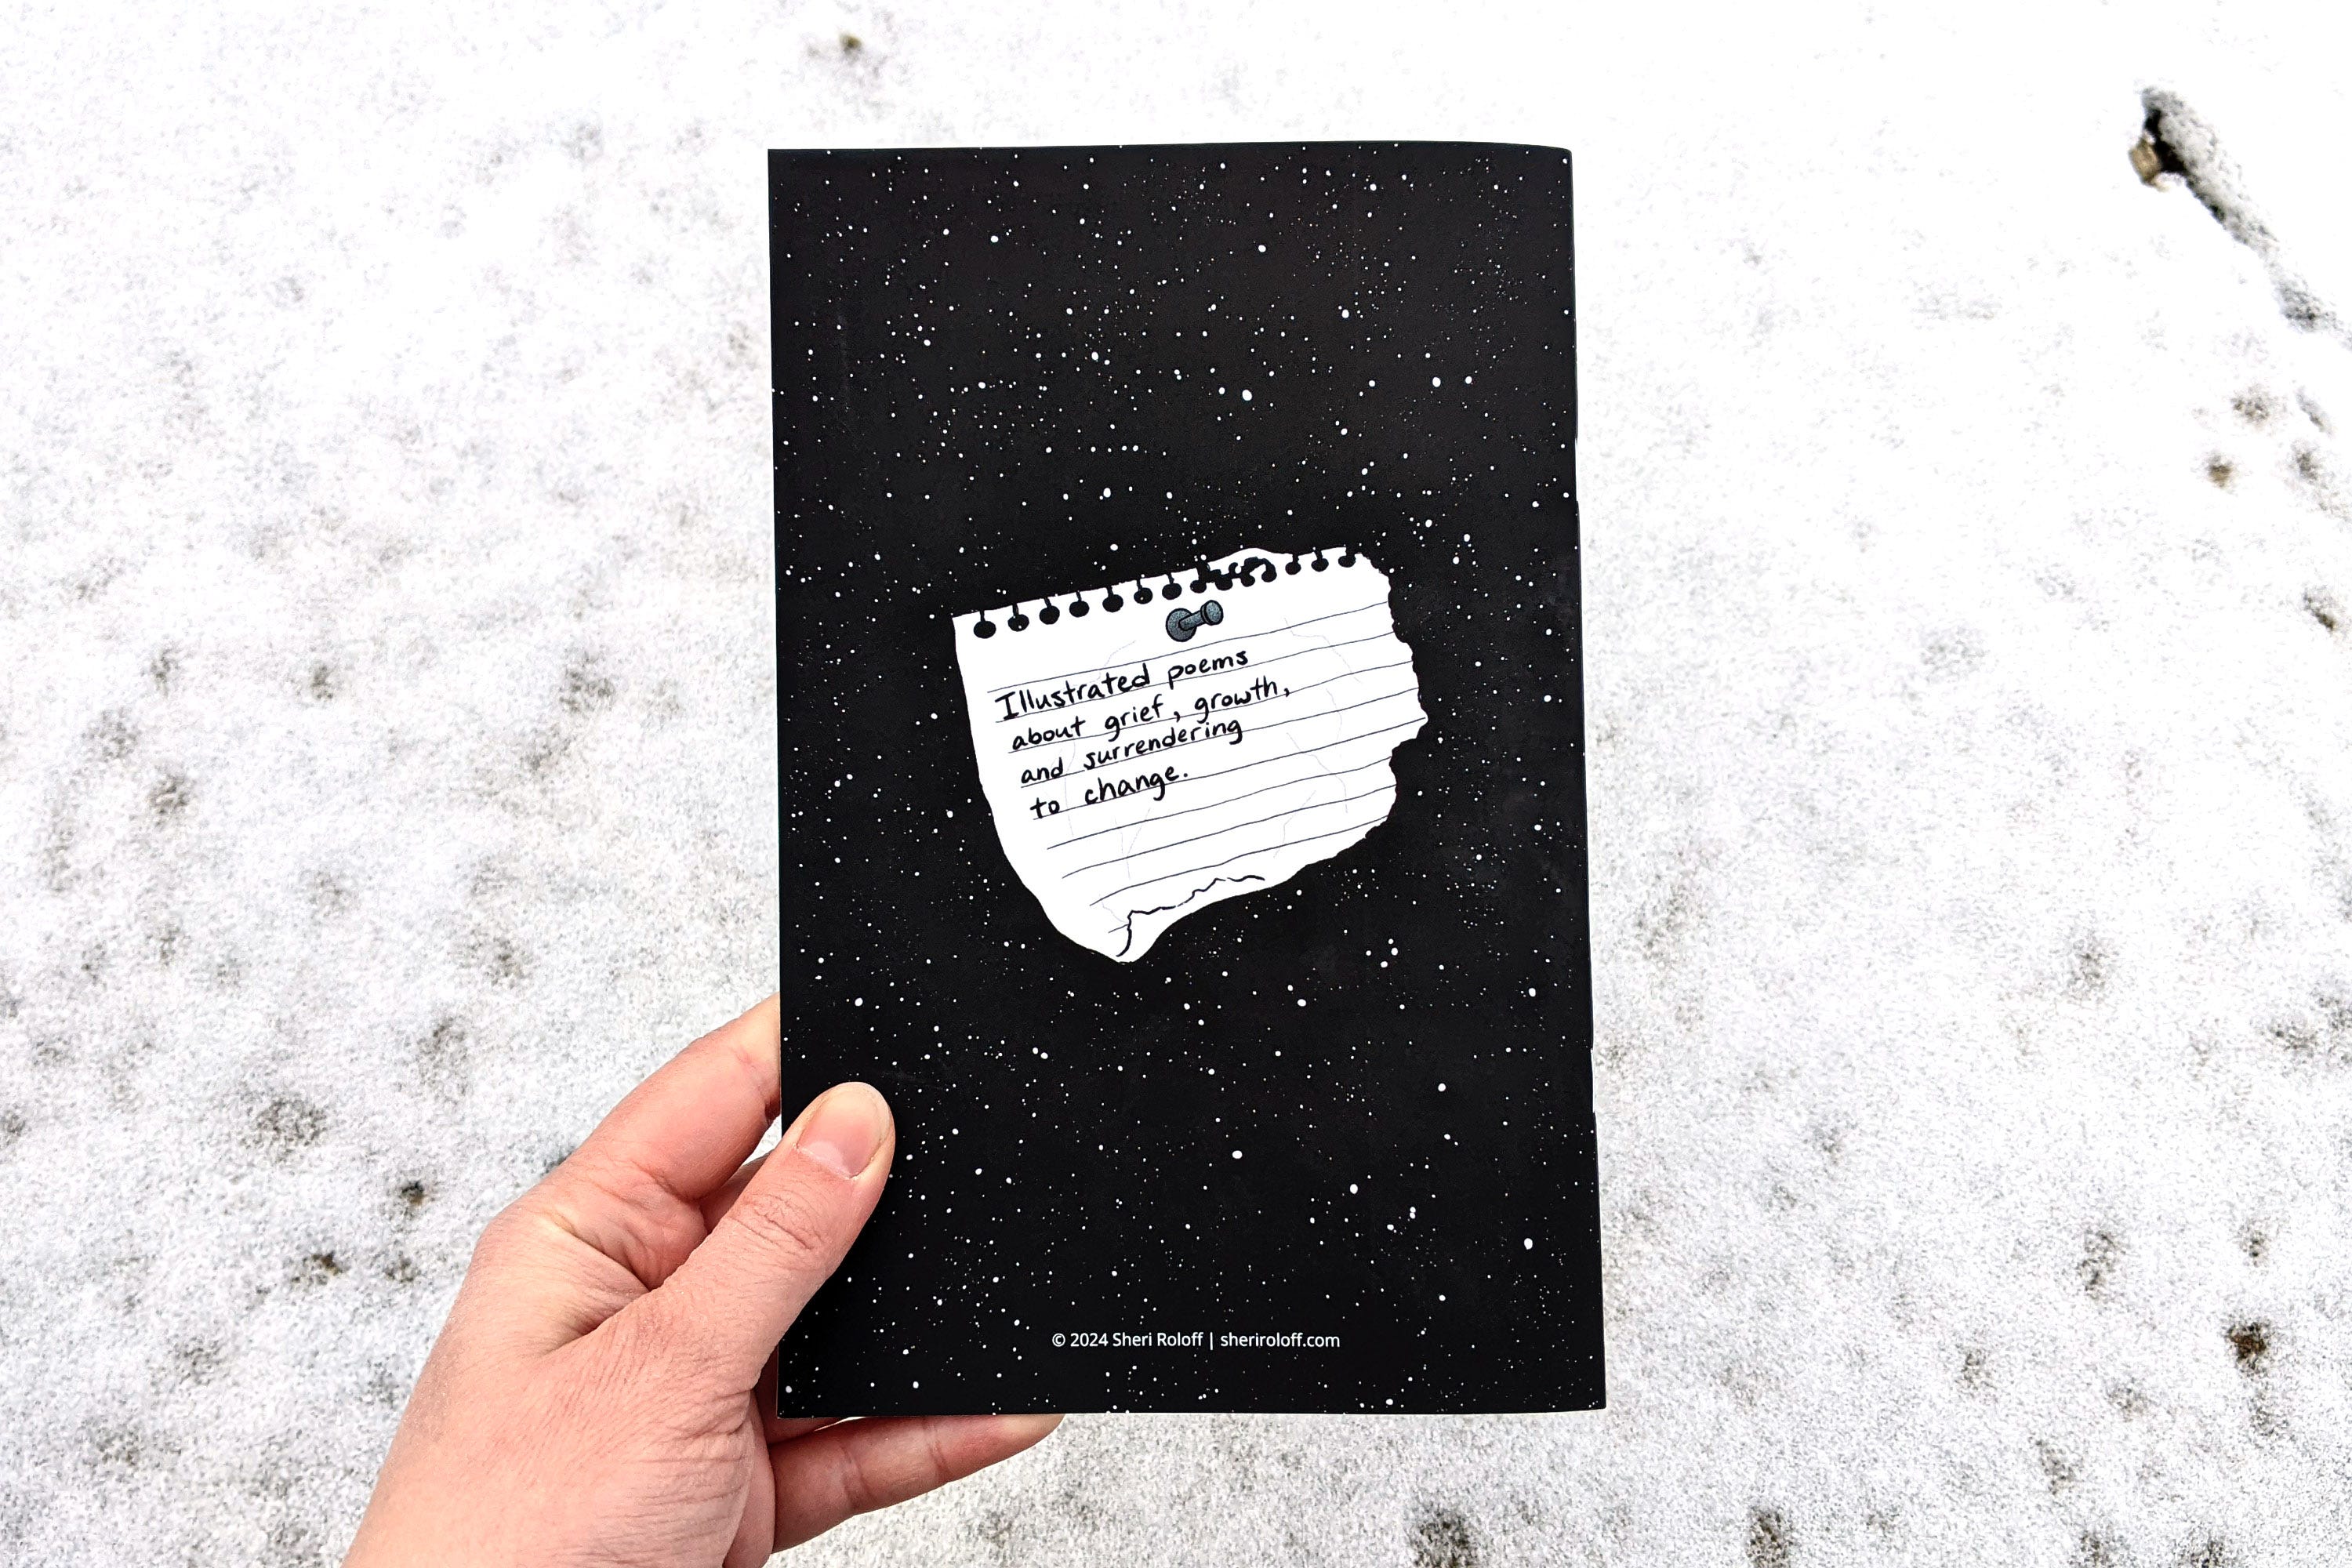 Illustrated poems
about grief, growth,
and surrendering
to change.
© 2024 Sheri Roloff | sheriroloff.com